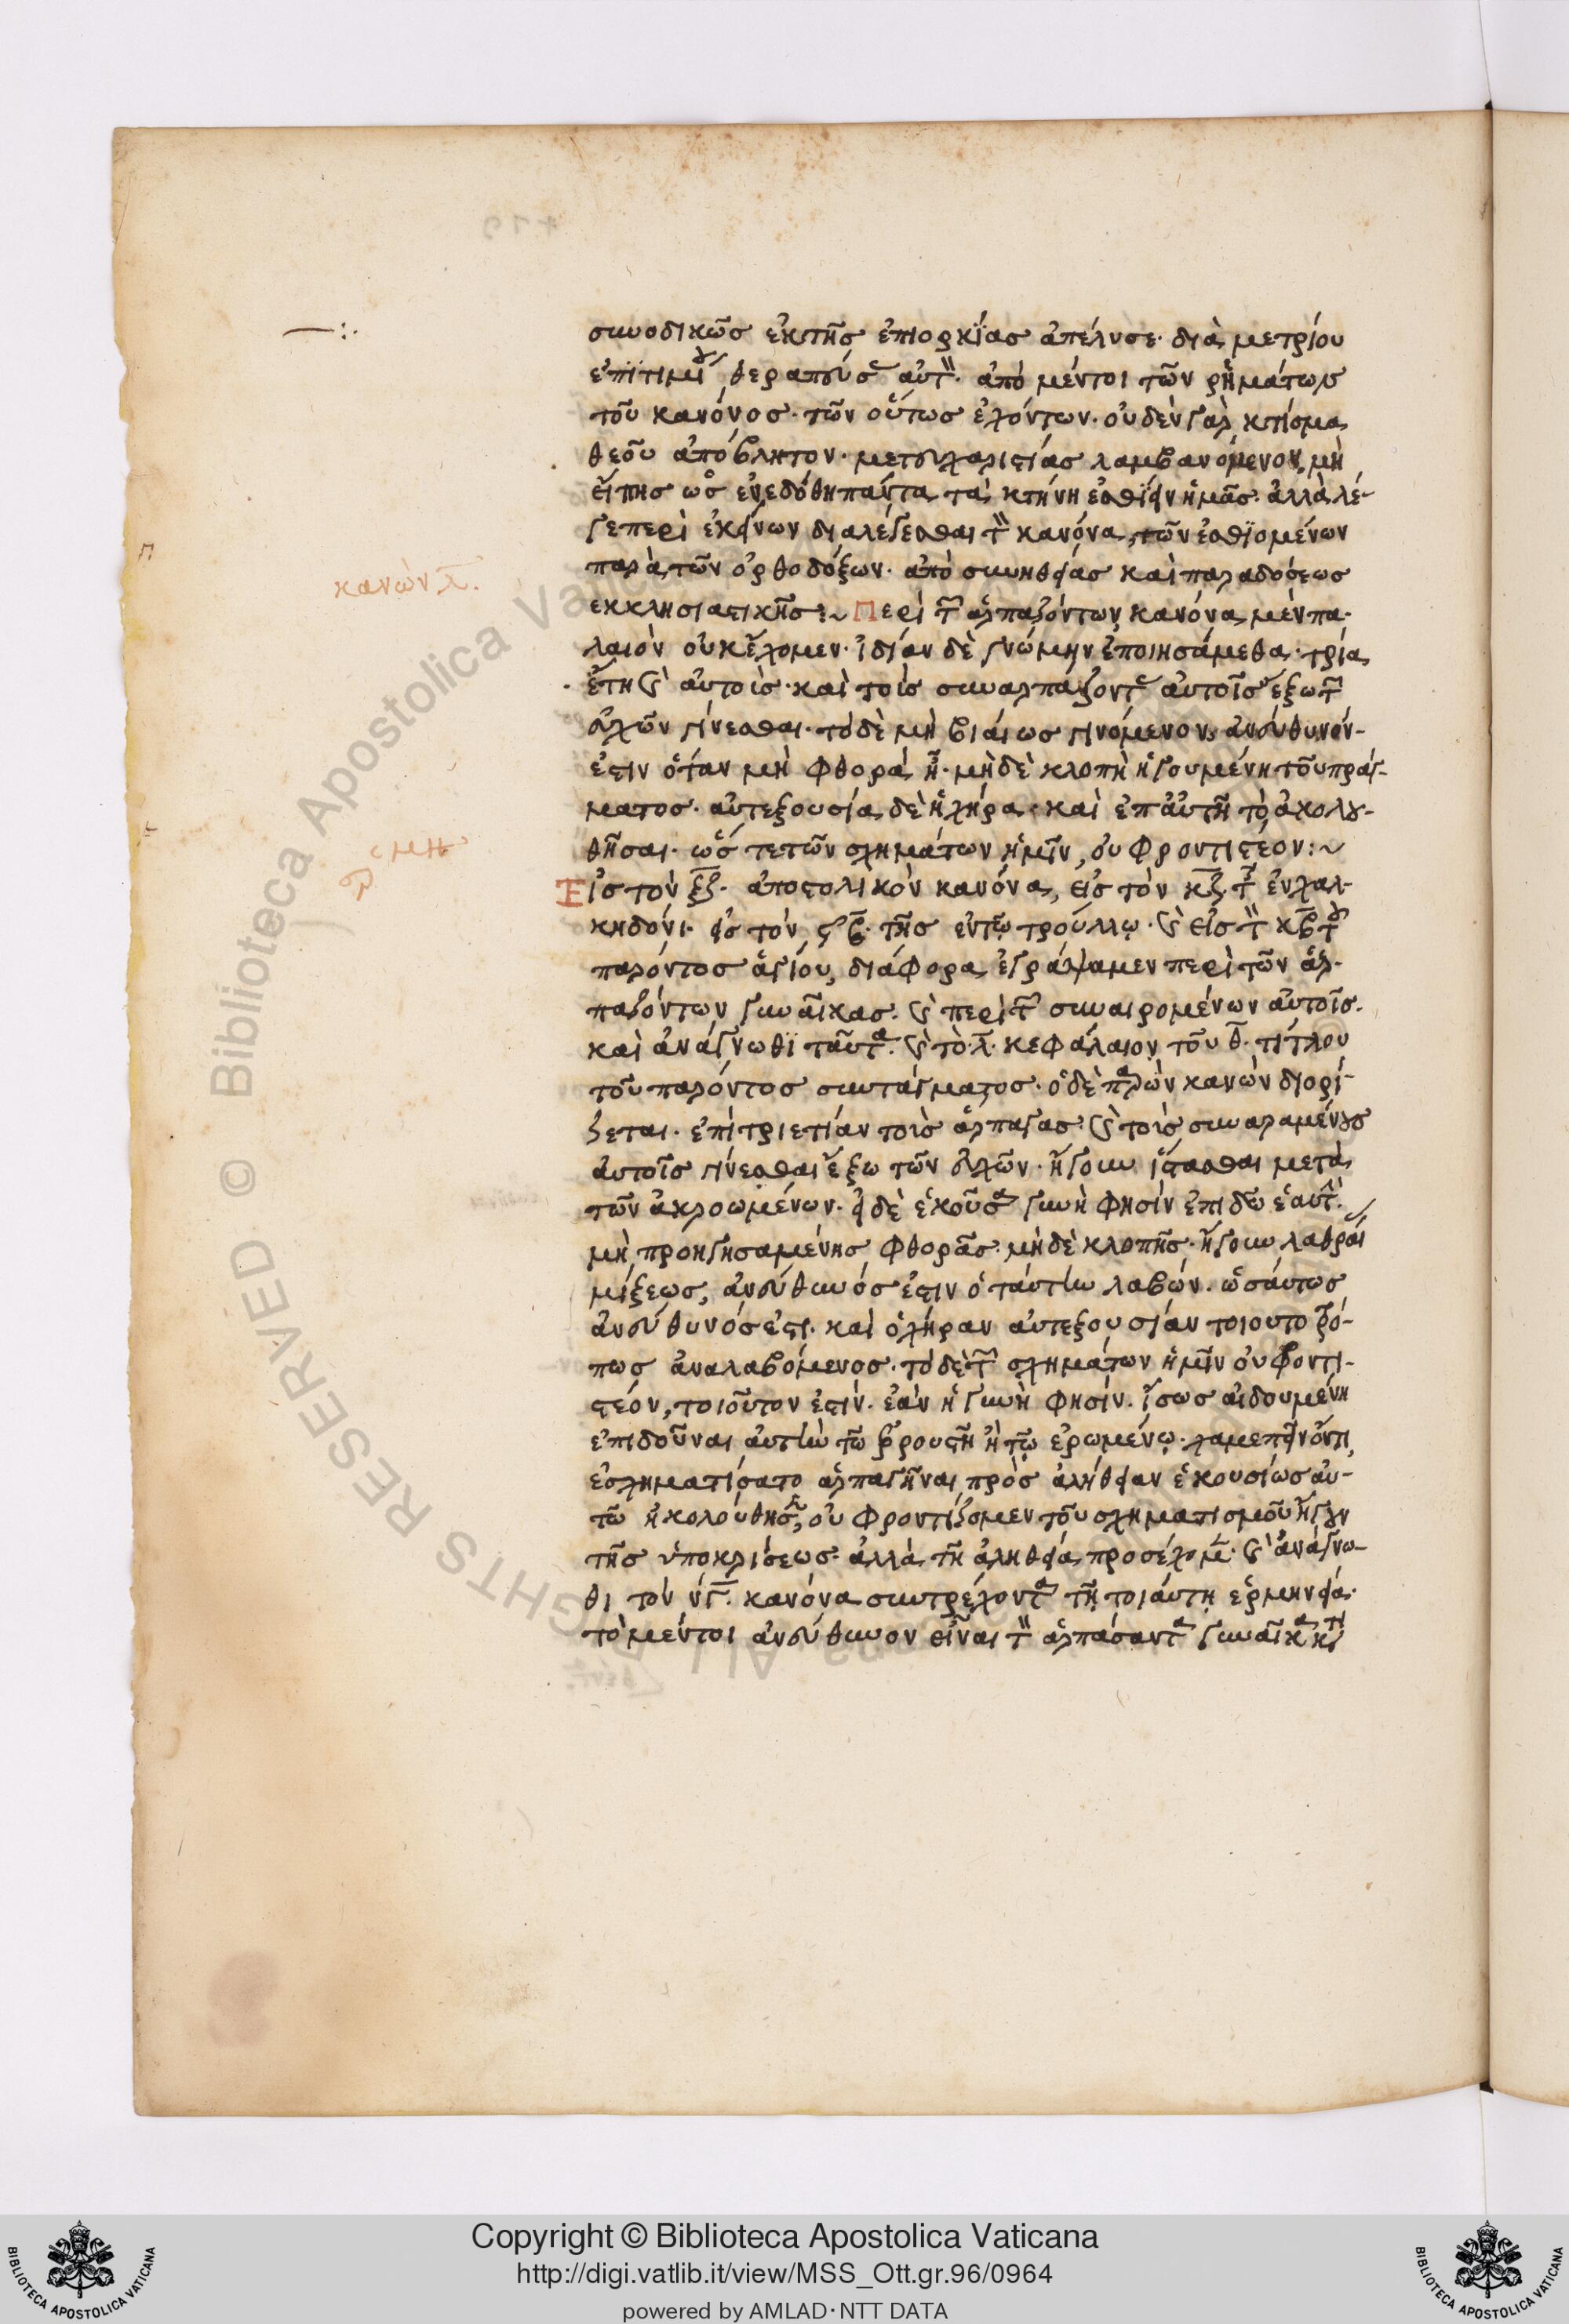 συνοδικῶς ἐκ τῆς ἐπιορκίας ἀπέλυσε· διὰ μετρίου
ἐπιτιμί θεραπεύσ αὐτ· ἀπὸ μέντοι τῶν ῥημάτων
τοῦ κανόνος· τῶν οὕτως ἐχόντων· οὐδὲν γὰρ κτίσμα
θεοῦ ἀπόβλητον· μετευχαριστίας λαμβανόμενον, μὴ
εἴπης ὡς ἐνεδόθη πάντα τὰ κτήνη ἐσθίειν ἡμᾶς· ἀλλὰ λέ-
γε περὶ ἐκείνων διαλέγεσθαι τ κανόνα, τῶν ἐσθιομένων
παρὰ τῶν ὀρθοδόξων· ἀπὸ συνηθείας καὶ παραδόσεως
κανὼν λ.
ἐκκλησιαστικῆς :~ Περὶ τ ἁρπαζόντων κανόνα μὲν πα-
λαιὸν οὐκ ἔχομεν· ἰδίαν δὲ γνώμην ἐποιησάμεθα· τρία
ἔτη ϗ αὐτοῖς· καὶ τοῖς συναρπάζοντ αὐτοῖς ἔξω τ
εὐχῶν γίνεσθαι· τὸ δὲ μὴ βιαίως γινόμενον, ἀνεύθυνόν-
ἐστιν ὅταν μὴ φθορὰ ᾖ· μὴ δὲ κλοπὴ ἡγουμένη τοῦ πράγ-
ματος· αὐτεξουσία δὲ ἡ χήρα· καὶ ἐπ αὐτῆ τὸ ἀκολου-
θῆσαι· ὥς τε τῶν σχημάτων ἡμῖν, οὐ φροντιστέον :~
Εἰς τὸν ξζ· ἀποστολικὸν κανόνα, εἰς τὸν κζ· τ ἐν χαλ-
κηδόνι· εἰς τὸν ϟβ· τῆς ἐν τῷ τρούλλῳ· ϗ εἰς τ κβ τ
παρόντος ἁγίου, διάφορα ἐγράψαμεν περὶ τῶν ἁρ-
παζόντων γυναῖκας· ϗ περὶ τ συναιρομένων αὐτοῖς·
καὶ ἀνάγνωθι ταῦτα· ϗ τὸ λ· κεφάλαιον τοῦ θ· τίτλου
τοῦ παρόντος συντάγματος· ὁ δὲ παρὼν κανὼν διορί-
ζεται· ἐπὶ τριετίαν τοὺς ἅρπαγας· ϗ τοὺς συναραμένους
αὐτοῖς γίνεσθαι ἔξω τῶν εὐχῶν· ἤγουν ἵστασθαι μετὰ
τῶν ἀκροωμένων· εἰ δὲ ἑκοῦσα γυνὴ φησὶν ἐπιδῶ ἑαυτ·
μὴ προηγησαμένης φθορᾶς· μὴ δὲ κλοπῆς· ἤγουν λαθραί
μίξεως, ἀνεύθυνός ἐστιν ὁ ταύτην λαβών· ὡσαύτως
ἀνεύθυνός ἐστι· καὶ ὁ χήραν αὐτεξουσίαν τοιουτοτρό-
πως ἀναλαβόμενος· τὸ δὲ τ σχημάτων ἡμῖν οὐ φροντι-
στέον, τοιοῦτον ἐστίν· ἐὰν ἡ γυνὴ φησίν· ἴσως αἰδουμένη
ἐπιδοῦναι αὐτὴν τῶ ἐρῶντι
ἐσχηματίσατο ἁρπαγῆναι, πρὸς ἀλήθειαν ἑκουσίως αὐ-
τῶ ἠκολούθησεν, οὐ φροντίζομεν τοῦ σχηματισμοῦ ἤγουν
τῆς ὑποκρίσεως· ἀλλὰ τῆ ἀληθεία προσέχομ· ϗ ἀνάγνω-
θι τὸν νγ· κανόνα συντρέχοντα τῆ τοιαύτη ἑρμηνεία·
τὸ μέντοι ἀνεύθυνον εἶναι τ ἁρπάσαντα γυναῖκα
Copyright © Biblioteca Apostolica Vaticana
http://digi.vatlib.it/view/MSS_Ott.gr.96/0964
powered by AMLAD · NTT DATA